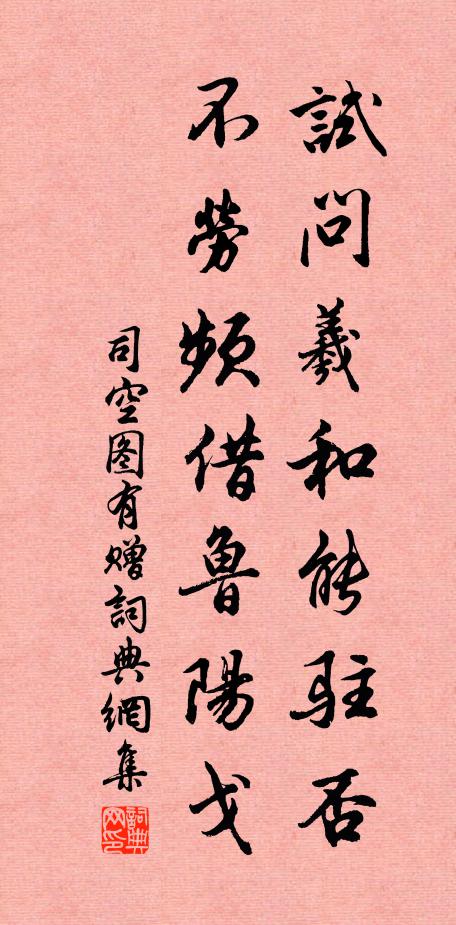 試問羲和能駐否
不勞頻借魯陽戈
司空图有赠詞典網集
詞典网印